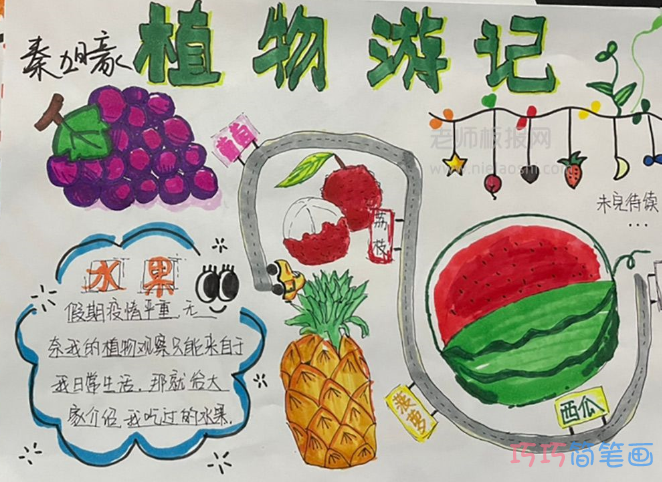 植物游记
秦旭豪
葡萄
老师板报网
www.nielaoshi.com
荔枝
未完待续
...
水果
假期疫情严重,无
奈我的植物观察只能来自于
我日常生活,那就给大
家介绍,我吃过的水果.
菠萝
西瓜
巧巧简笔画